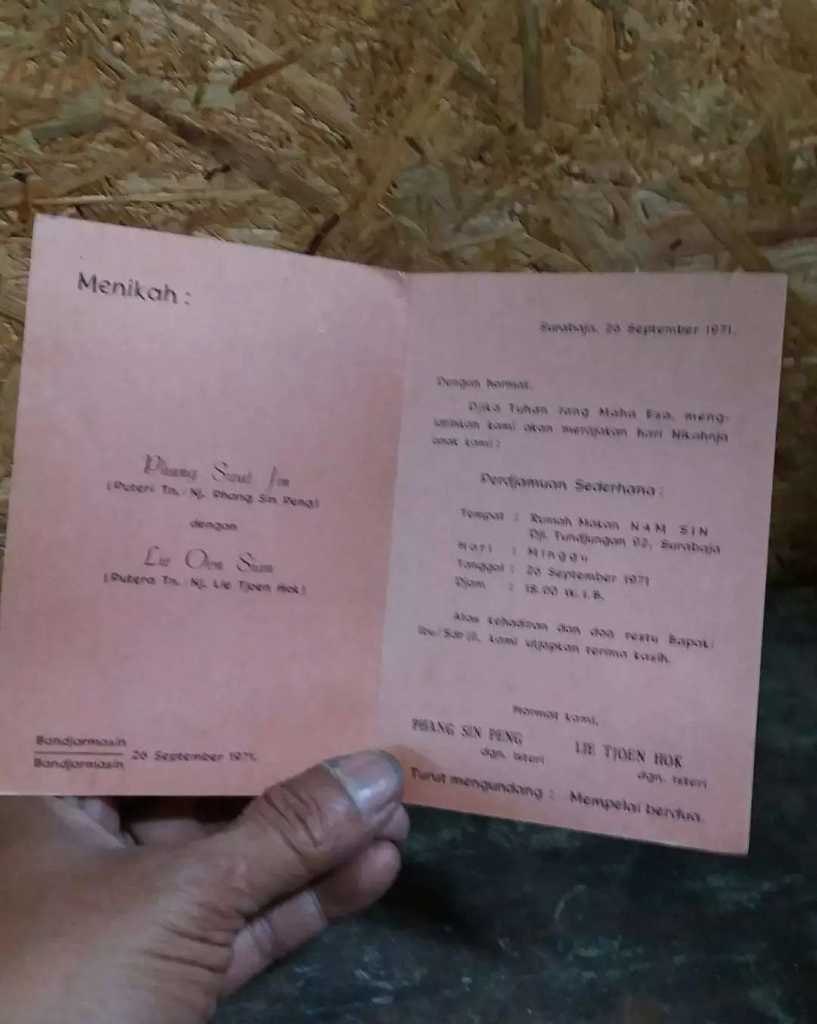 Menikah :
Phang Swat Jin
(Puteri Tn./Nj. Phang Sin Peng)
dengan
Lie Oen Siam
(Putera Tn./Nj. Lie Tjoen Hok)
Bandjarmasin
Bandjarmasin
26 September 1971.
Surabaja, 26 September 1971.
Dengan hormat,
Djika Tuhan Jang Maha Esa, meng-
idzinkan kami akan merajakan hari Nikahnja
anak kami :
Perdjamuan Sederhana :
Tempat : Rumah Makan NAM SIN
Djl. Tundjungan 92, Surabaja
Hari : Minggu
Tanggal : 26 September 1971
Djam : 18.00 W.I.B.
Atas kehadiran dan doa restu Bapak/
Ibu/Sdr/i, kami utjapkan terima kasih.
Hormat kami,
PHANG SIN PENG
dgn. Isteri
LIE TJOEN HOK
dgn. Isteri
Turut mengundang : Mempelai berdua.